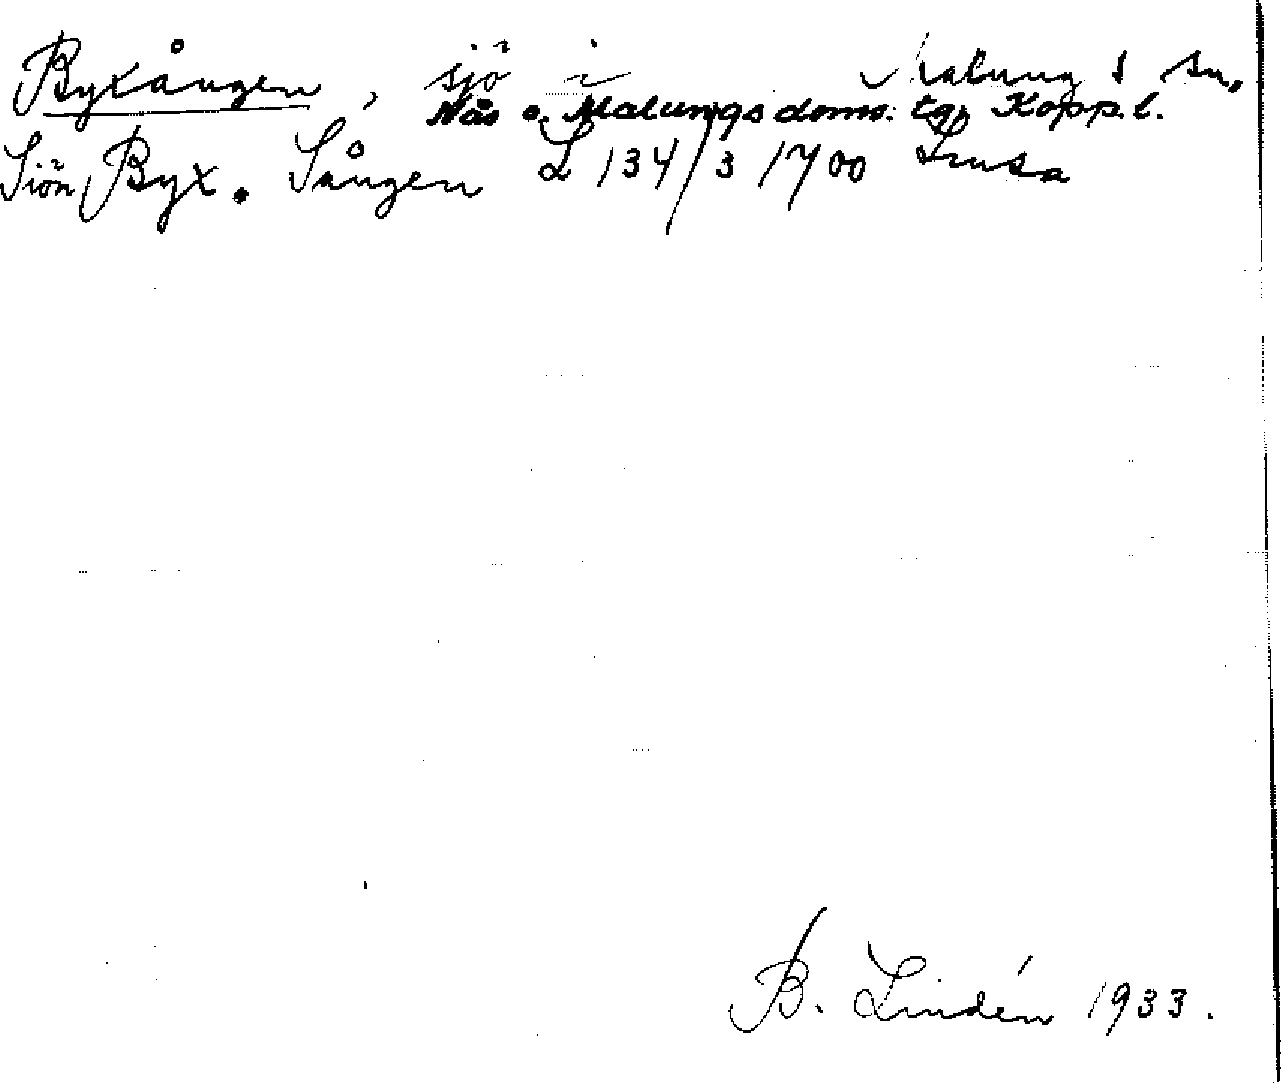 Byxången, sjö i Malungs sn,
Nås o. Malungs doms. tg, Kopp.l.
Siön Byx. Sången L 134/3 1700
B. Lindén 1933.